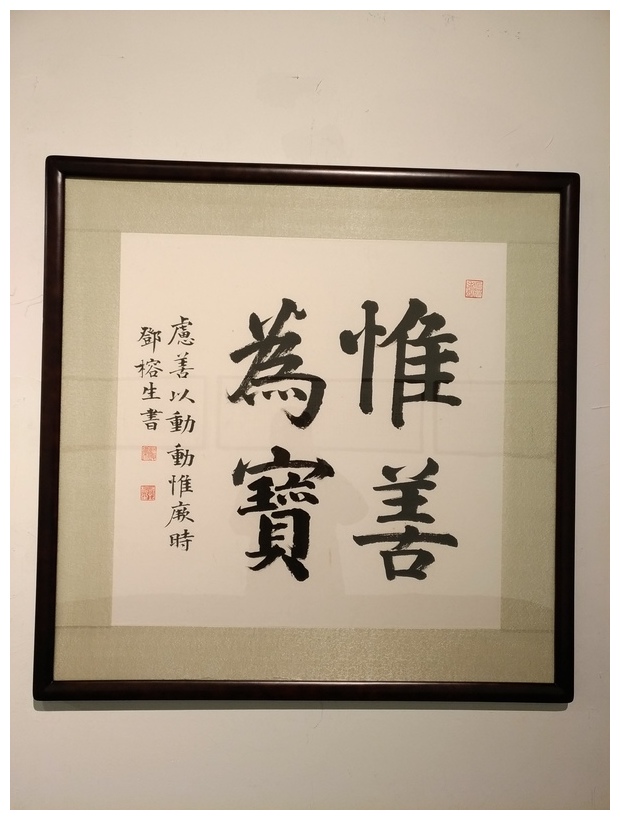 惟善
為寶
慮善以動動惟厥時
鄧榕生書